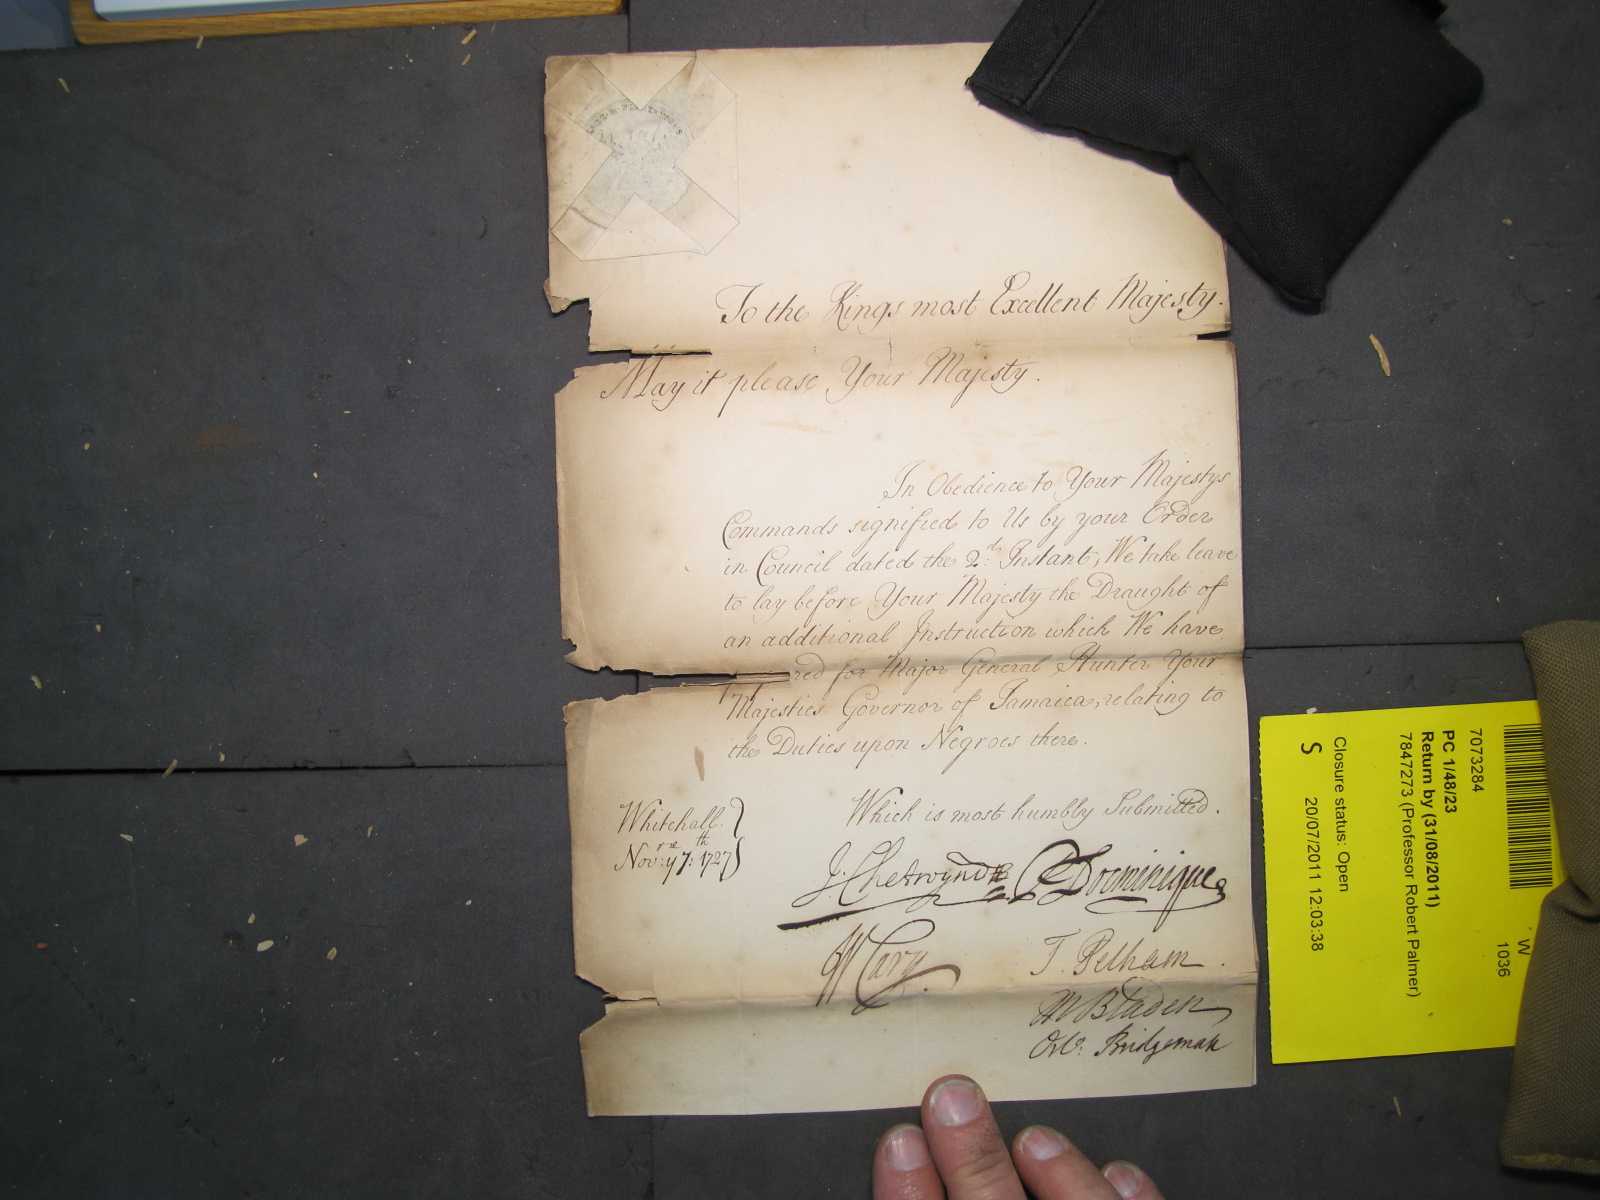 To the Kings most Excellent Majesty.
May it please Your Majesty.
In Obedience to Your Majestys
Commands signified to Us by your Order
in Council dated the 2d. Instant, We take leave
to lay before Your Majesty the Draught of
an additional Instruction which We have
red for Major General Hunter Your
Majesties Governor of Jamaica, relating to
the Duties upon Negroes there.
Which is most humbly Submitted.
Whitehall.
Novr: ye 7th: 1727
J. Chetwynd
P. Dominique
W Cary
T. Pelham.
M Bladen
Orl: Bridgeman
W
1036
7073284
PC 1/48/23
Return by (31/08/2011)
7847273 (Professor Robert Palmer)
Closure status: Open
S 20/07/2011 12:03:38